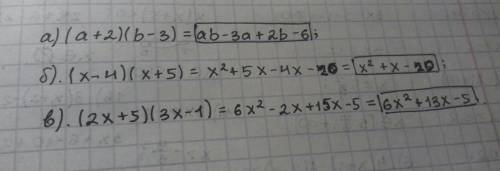 а) (a+2)(b-3) = ab-3a+2b-6;
б). (x-4)(x+5) = x²+5x-4x-20 = x²+x-20;
в). (2x+5)(3x-1) = 6x²-2x+15x-5 = 6x²+13x-5